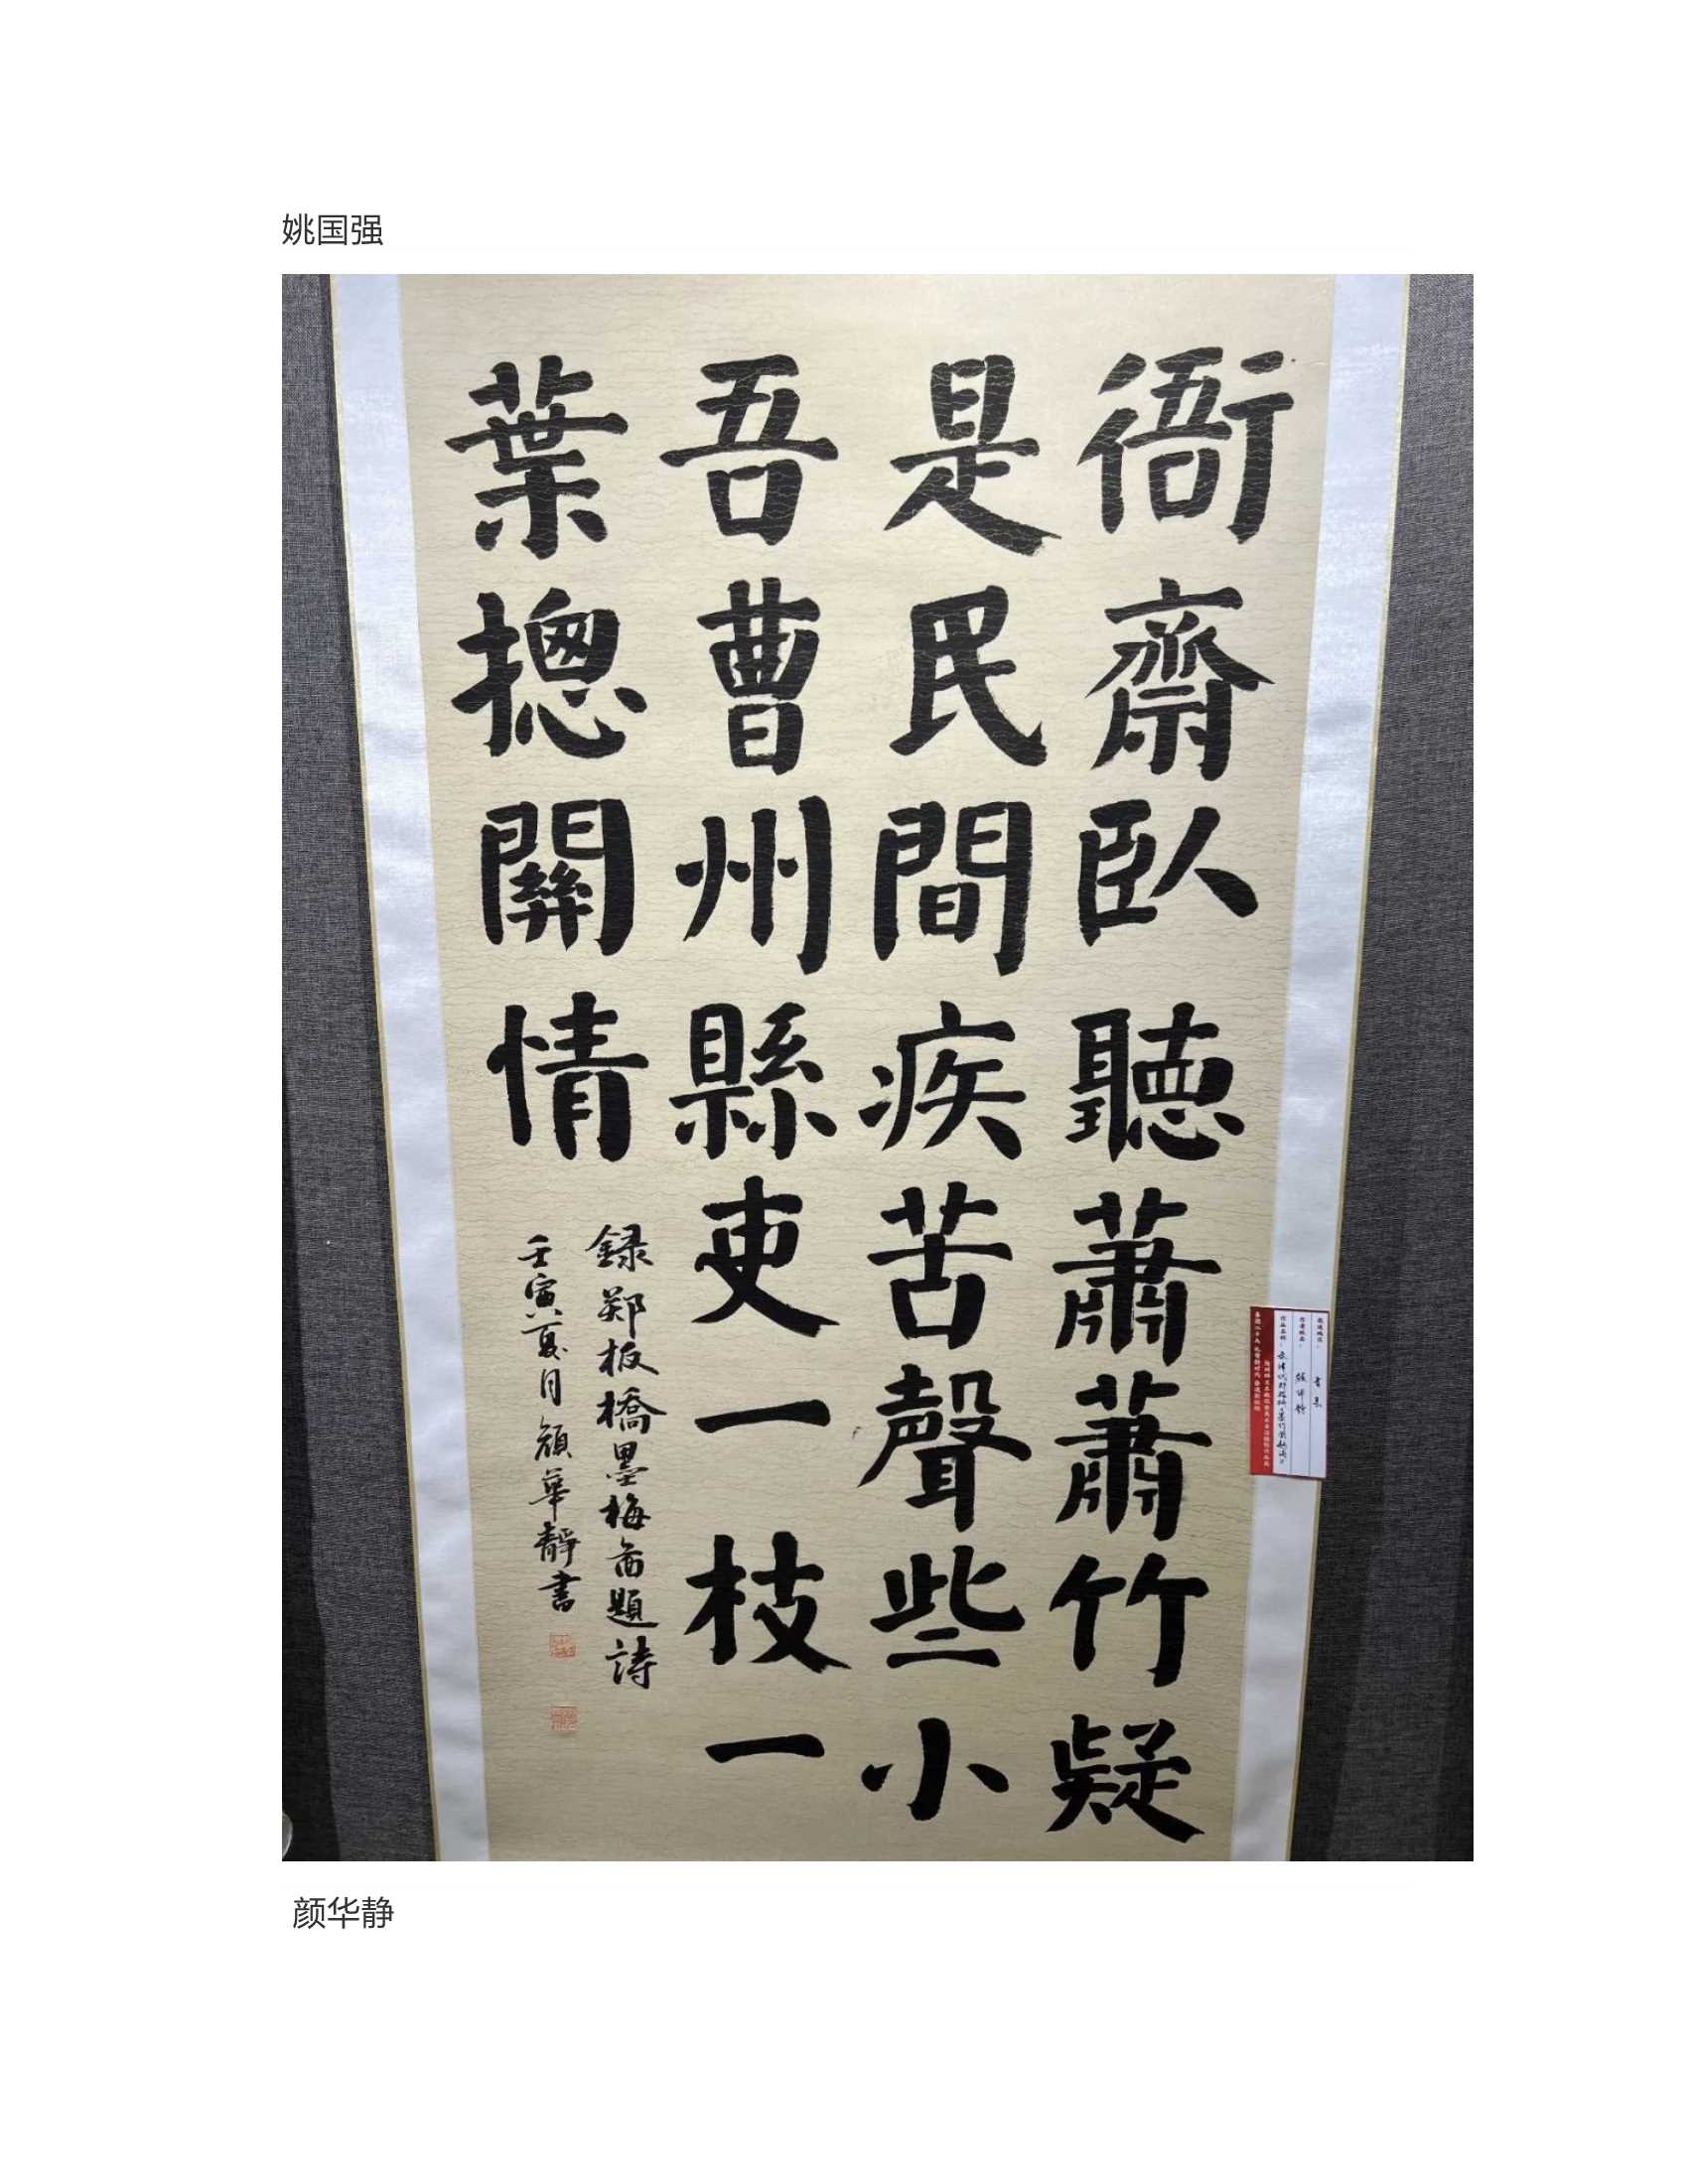 姚国强
衙齋臥聽蕭蕭竹疑
是民間疾苦聲些小
吾曹州縣吏一枝一
葉摠關情
録郑板橋墨梅畜題詩
壬寅夏月顔華靜書
颜华静